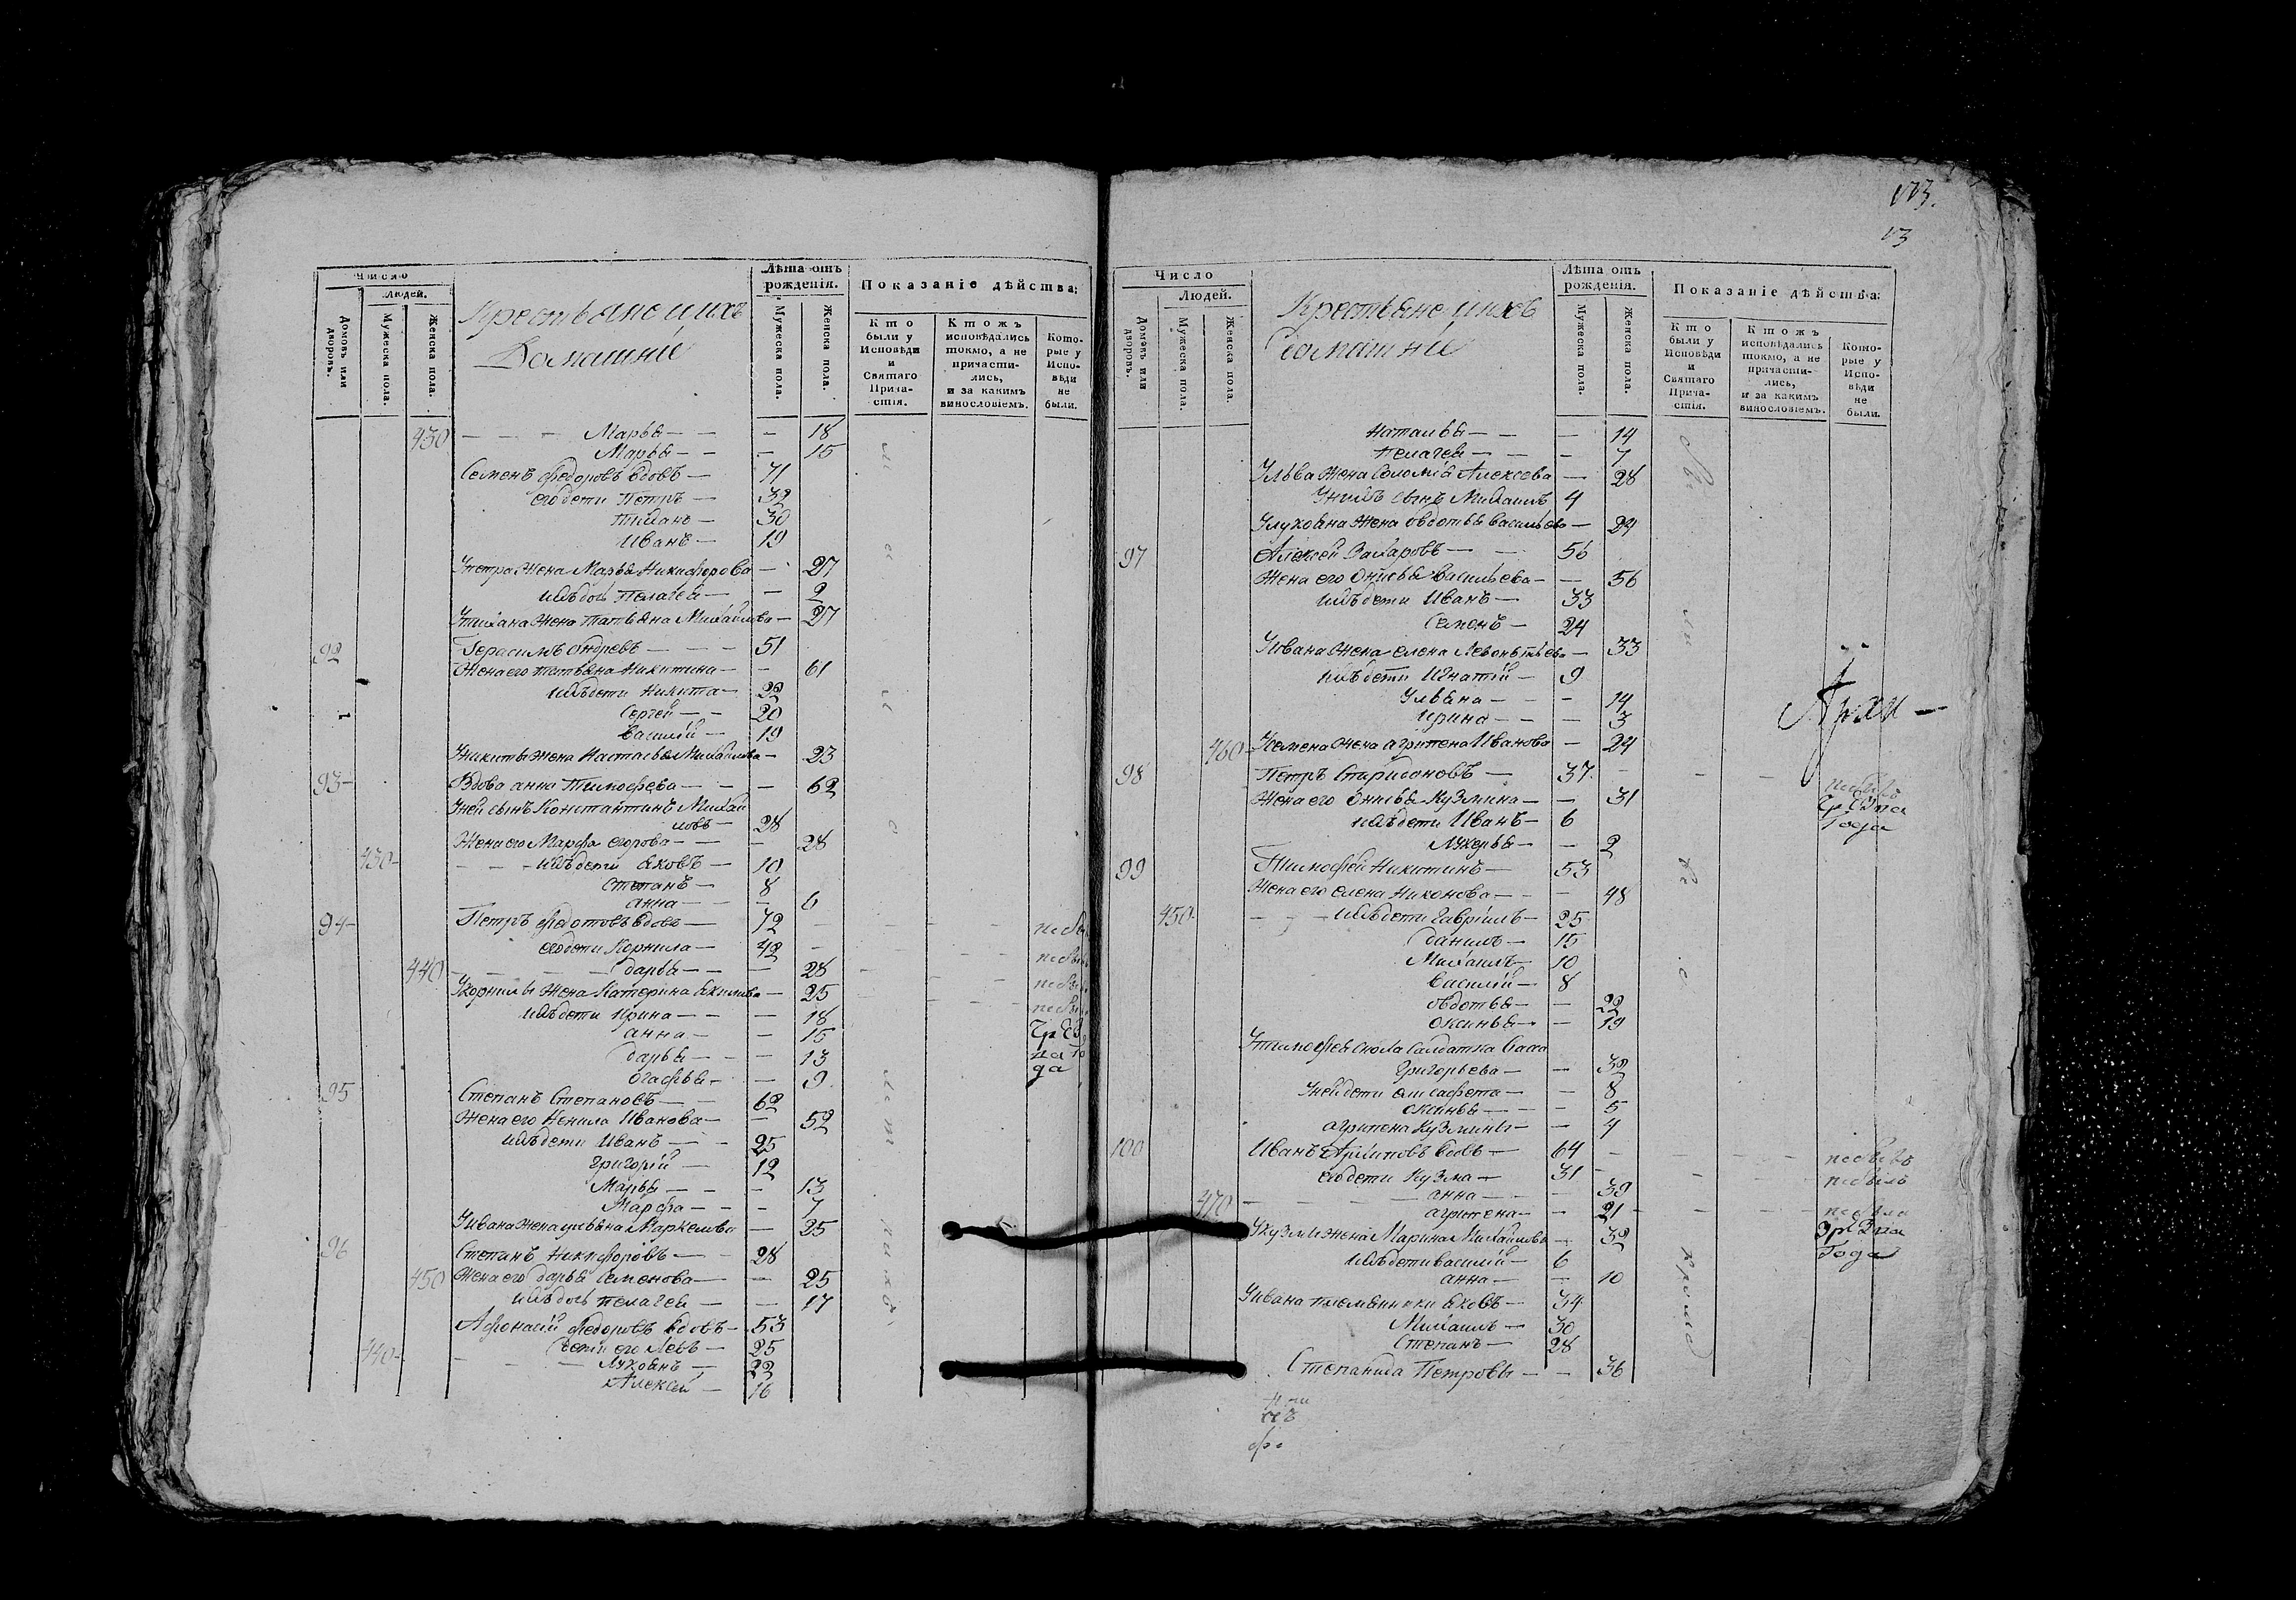 Число
Людей.
Домовъ или дворовъ.
Мужеска пола.
Женска пола.
Крестьяне ихъ
Домашніе
Лѣта отъ рожденія.
Мужеска пола.
Женска пола.
Показаніе дѣйства;
Кто были у Исповѣди и Святаго Прича-стія.
Ктожъ исповѣдались токмо, а не причасти-лись, и за какимъ винословіемъ.
Кото-рые у Испо-вѣди не были.
430 — — — Марья — — — 18
Марья — — — 15
Семенъ Федоровъ вдовъ — 71
его дети Петръ — 32
Тиханъ — 30
Иванъ — 19
У петра жена Марья Никифорова — 27
ихъ дочь Пелагея — — 2
У тихана жена татьяна Михайлова — 27
92 Герасимъ Ондревъ — — — 51
Жена его татьяна Никитина — — 61
ихъ дети Никита — 22
Сергей — — 20
Василій — 19
У никиты жена Настасья Михайлова — 23
93 — Вдова анна Тимофеева — — — 62
У ней сынъ Константинъ Михай
ловъ — 28
Жена его Марфа егорова — — — 28
430 — — — — ихъ дети яковъ — 10
степанъ — 8
анна — — — 6
94 — Петръ Федотовъ вдовъ — 72 — — — —
его дети Корнила — 42 — — —
440 — — — — дарья — — — 28 — — —
У корнилы жена Катерина якимова — 25 — — —
ихъ дети Ирина — — — 18
анна — — 15
дарья — — — 13
огафья — — 9
да
95 Степанъ Степановъ — — 62
Жена его Ненила Иванова — — 52
ихъ дети Иванъ — — 25
Григорій — 12
Марья — — — 13
Марфа — — — 7
У ивана жена ульяна Маркелова — 25
96 Степанъ Никифоровъ — — 28
450 Жена его дарья Семенова — — 25
ихъ дочь пелагея — — 17
Афонасій Федоровъ вдовъ — 53
дети его Левъ — 25
440 — — — — Лукоянъ — 22
Алексей — 16
173.
13
Число
Людей.
Домовъ или дворовъ.
Мужеска пола.
Женска пола.
Крестьяне ихъ
домашніе
Лѣта отъ рожденія.
Мужеска пола.
Женска пола.
Показаніе дѣйства;
Кто были у Исповѣди и Святаго Прича-стія.
Ктожъ исповѣдались токмо, а не причасти-лись, и за какимъ винословіемъ.
Кото-рые у Испо-вѣди не были.
Наталья — — — 14
Пелагея — — — 7
У льва жена Соломія Алексеева — 28
У нихъ сынъ Михаилъ 4
У лукояна жена овдотья васильева — 24
97 Алексей Захаровъ — — 56
Жена его Онисья Васильева — — 56
ихъ дети Иванъ — 33
Семенъ — 24
У ивана жена елена Левонтьева — 33
ихъ дети Игнатій — 9
Ульяна — — — 14
Ирина — — — 3
Архи —
460 — У семена жена агрипена Иванова — 24
98 Петръ Спиридоновъ — 37 — — —
Жена его Онисья Кузмина — — 31
ихъ дети Иванъ — 6
Года
Лукерья — — 2
99 Тимофей Никитинъ — 53
Жена его елена Никонова — — — 48
450 — — — — ихъ дети Гаврилъ — 25
данилъ — 15
Михаилъ — 10
Василій — 8
овдотья — — 22
оксинья — — 19
У тимофея сноха Салдатка
Григорьева — — 32
У ней дети елисафета — — 8
оксинья — — — 5
агрипена Кузмины — — 4
100 Иванъ Архиповъ вдовъ — 64 — — —
его дети Кузма — 31 — —
470 — — — — анна — — — 39
агрипена — — 21 — — —
У кузмы жена Марина Михайлова — 32
Года
ихъ дети василій — 6
анна — — 10
У ивана племянники яковъ — 34
Михаилъ — 30
Степанъ — 28
Степанида Петровы — — 36
кроме